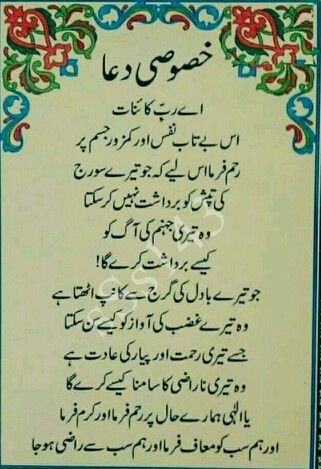 خصوصی دعا
اے ربّ کائنات
اس بے تاب نفس اور کمزور جسم پر
رحم فرما اس لیے کہ جو تیرے سورج
کی تپش کو برداشت نہیں کر سکتا
وہ تیری جہنم کی آگ کو
کیسے برداشت کرے گا!
جو تیرے بادل کی گرج سے کانپ اٹھتا ہے
وہ تیرے غضب کی آواز کو کیسے سن سکتا
جسے تیری رحمت اور پیار کی عادت ہے
وہ تیری ناراضی کا سامنا کیسے کرے گا
یا الٰہی ہمارے حال پر رحم فرما اور کرم فرما
اور ہم سب کو معاف فرما اور ہم سب سے راضی ہو جا